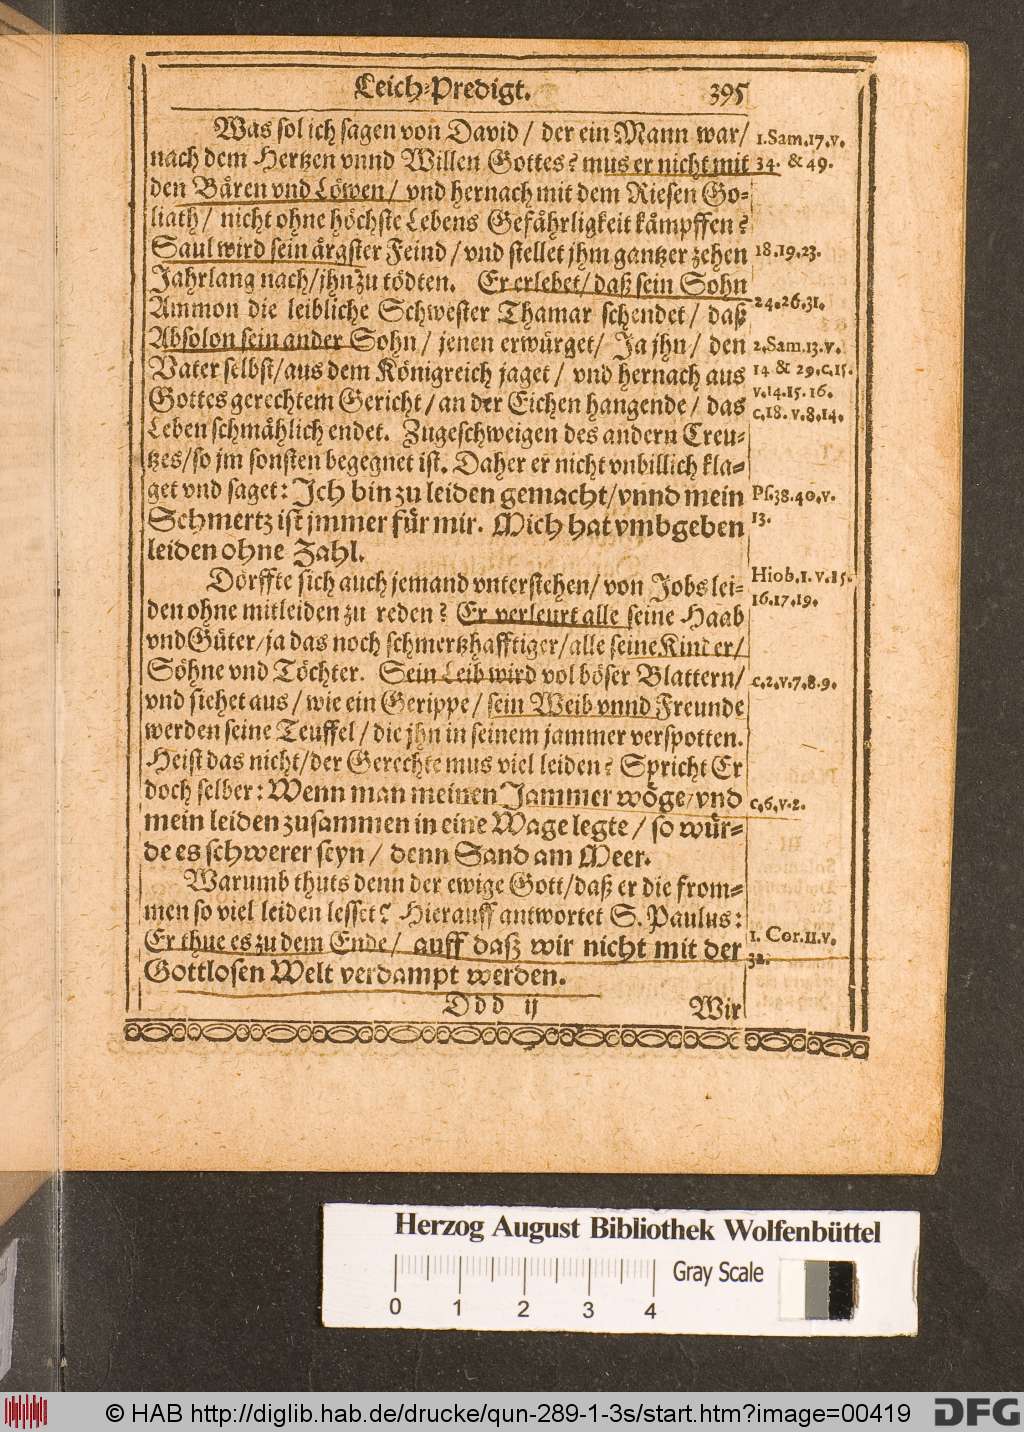 Leich-Predigt. 395
Was sol ich sagen von David / der ein Mann war/ 1.Sam.17.v.
nach dem Hertzen vnnd Willen Gottes? mus er nicht mit 34. & 49.
den Bären vnd Löwen / vnd hernach mit dem Riesen Go-
liath / nicht ohne höchste Lebens Gefährligkeit kämpffen?
Saul wird sein ärgster Feind / vnd stellet jhm gantzer zehen 18.19.23.
Jahrlang nach/jhn zu tödten. Er erlebet / daß sein Sohn
24.26.31.
Ammon die leibliche Schwester Thamar schendet / daß
Absolon sein ander Sohn / jenen erwürget/ Ja jhn / den 2.Sam.13.v.
Vater selbst/aus dem Königreich jaget / vnd hernach aus 14 & 29.c.15.
v.14.15.16.
Gottes gerechtem Gericht / an der Eichen hangende / das c.18. v.8.14.
Leben schmählich endet. Zugeschweigen des andern Creu-
tzes/so jm sonsten begegnet ist. Daher er nicht vnbillich kla-
get vnd saget: Ich bin zu leiden gemacht/vnnd mein Ps.38.40.v.
Schmertz ist jmmer für mir. Mich hat vmbgeben 13.
leiden ohne Zahl.
Dörffte sich auch jemand vnterstehen/ von Jobs lei- Hiob.1.v.15.
den ohne mitleiden zu reden? Er verleurt alle seine Haab 16.17.19.
vnd Güter/ja das noch schmertzhafftiger/alle seine Kinder/
Söhne vnd Töchter. Sein Leib wird vol böser Blattern/ c.2.v.7.8.9.
vnd siehet aus / wie ein Gerippe / sein Weib vnnd Freunde
werden seine Teuffel / die jhn in seinem jammer verspotten.
Heist das nicht/der Gerechte mus viel leiden? Spricht Er
doch selber: Wenn man meinen Jammer wöge/vnd c.6.v.2.
mein leiden zusammen in eine Wage legte / so wür-
de es schwerer seyn / denn Sand am Meer.
Warumb thuts denn der ewige Gott/daß er die from-
men so viel leiden lesset? Hierauff antwortet S. Paulus:
Er thue es zu dem Ende/ auff daß wir nicht mit der 1. Cor.11.v.
32.
Gottlosen Welt verdampt werden.
Ddd ij Wir
Herzog August Bibliothek Wolfenbüttel
Gray Scale
0 1 2 3 4
© HAB http://diglib.hab.de/drucke/qun-289-1-3s/start.htm?image=00419 DFG